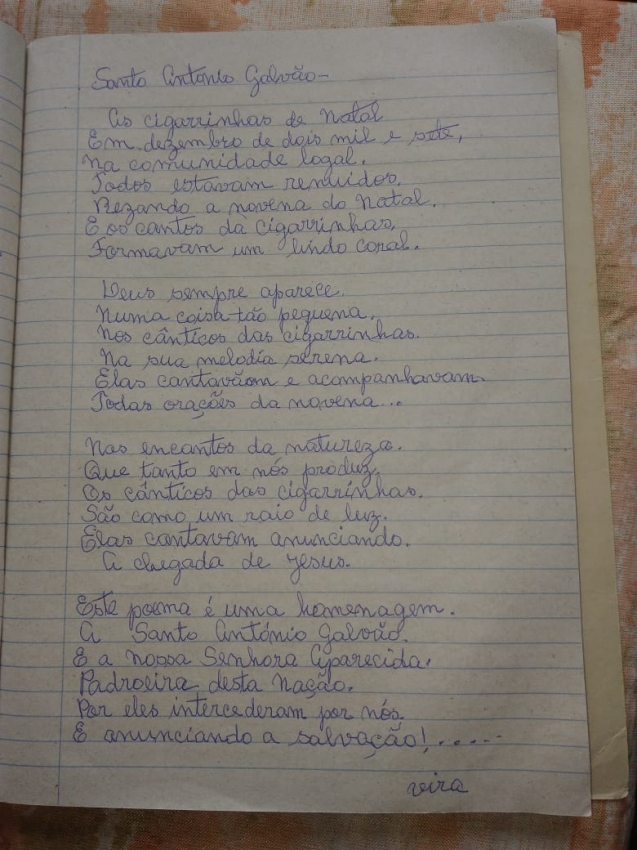 Santo Antonio Galvão-
As cigarrinhas de Natal
Em dezembro de dois mil e sete,
Na comunidade logal.
Todos estavam renuidos.
Rezando a novena do Natal.
E os cantos da cigarrinhas,
Formavam um lindo coral.
Deus sempre aparece.
Numa coisa tão pequena.
Nos cânticos das cigarrinhas.
Na sua melodia serena.
Elas cantavãom e acompanhavam.
Todas orações da novena...
Nas encantos da natureza.
Que tanto em nós produz,
Os cânticos das cigarrinhas.
São como um raio de luz.
Elas cantavam anunciando.
A chegada de Jesus.
Este poema é uma homenagem.
A Santo António Galvão.
E a Nossa Senhora Aparecida.
Padroeira desta Nação.
Por eles intercederam por nós.
E anunciando a salvação!......
vira